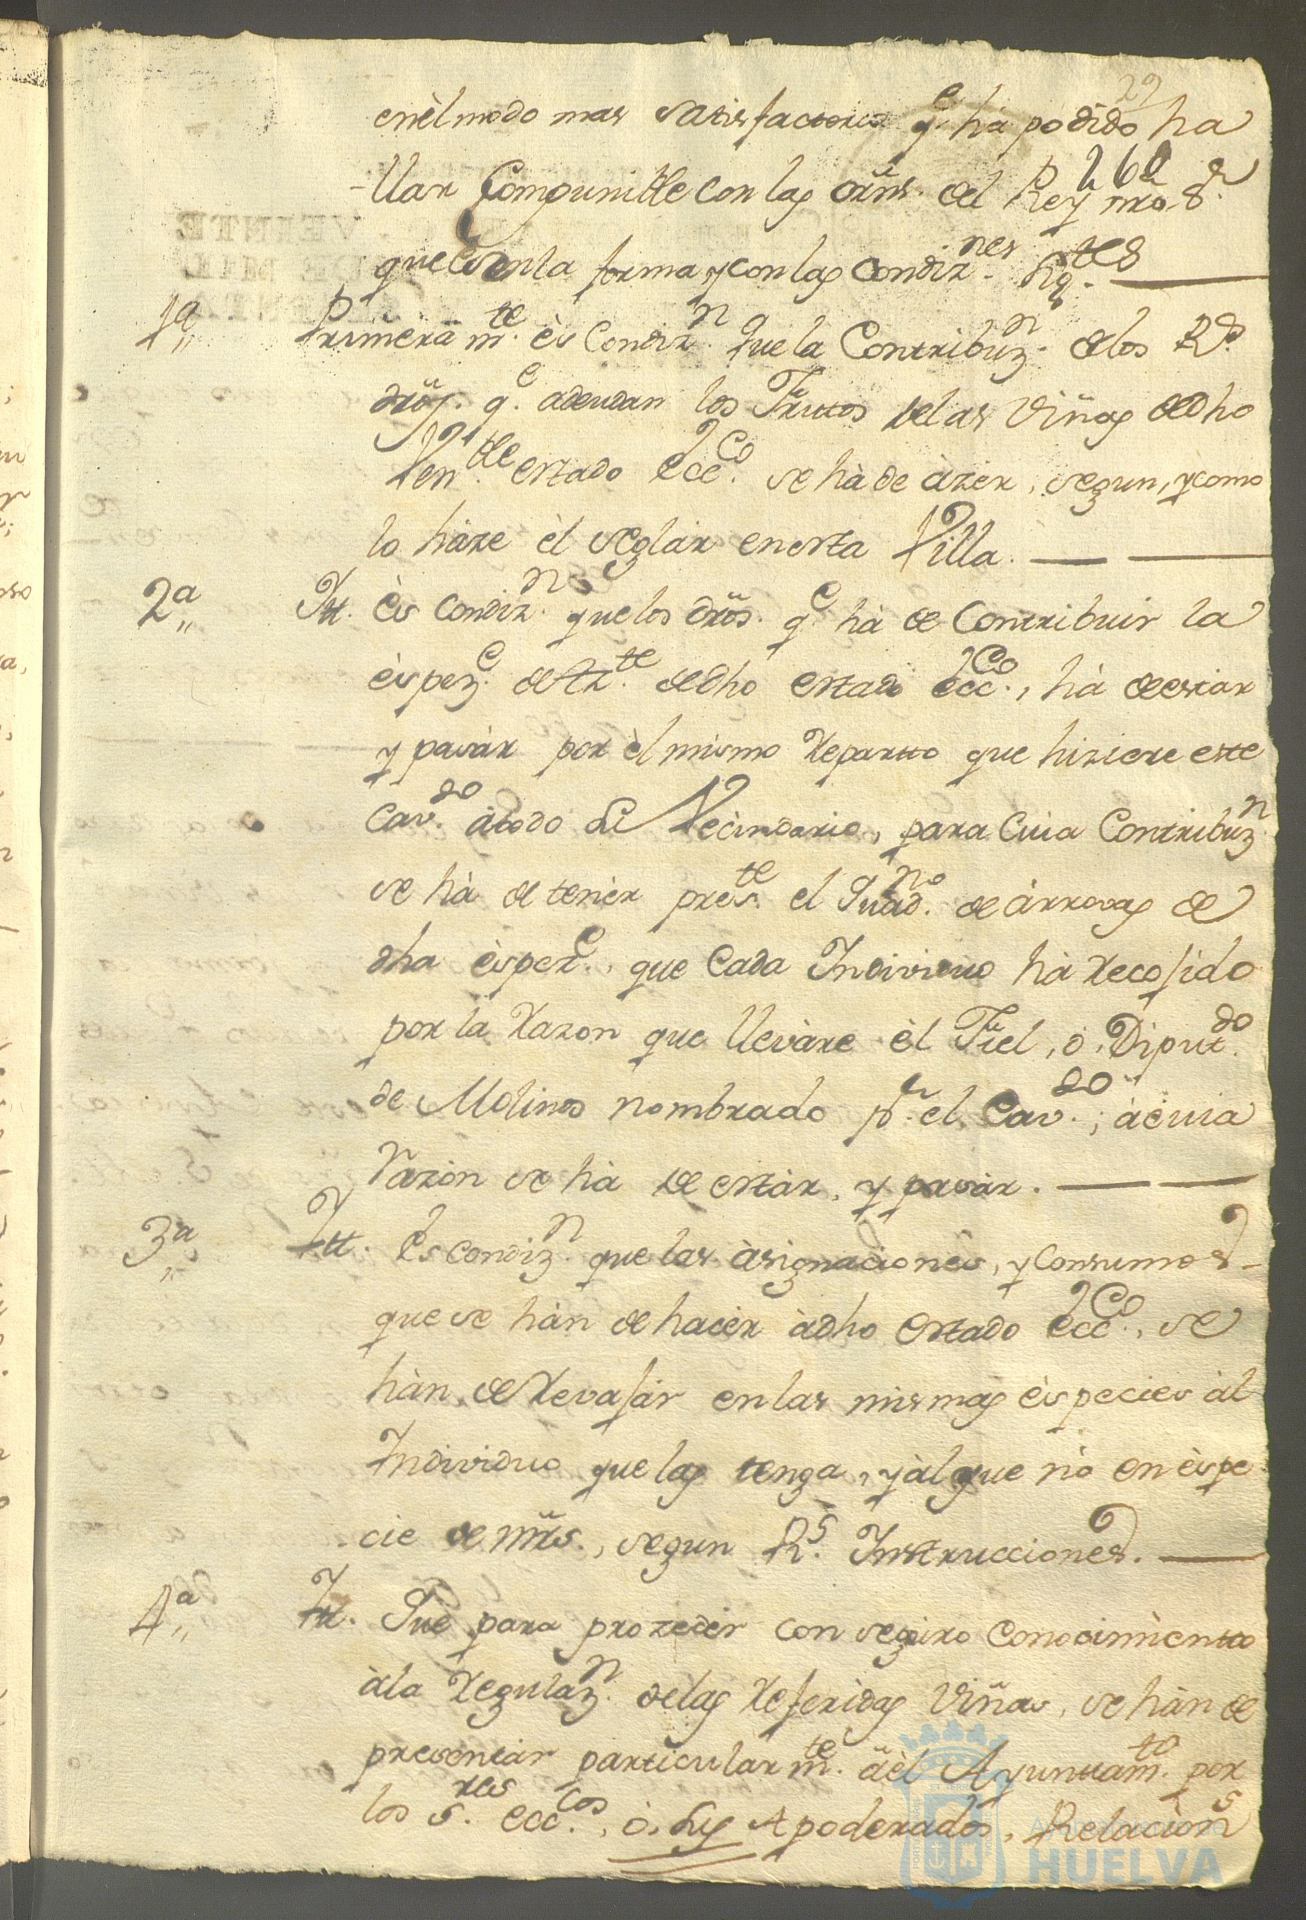 29
enèl modo mas satisfactorio q.e ha podido ha
260
-llar Componible con las orñs. del Rey nro S.r
que es en la forma y con las condiz.nes sig.tes
1a,, Primeram.te ès Condiz.n Que la Contribuz.n de los R.s
drõs. q.e adeudan los Frutos de las Viñas de dho
Ven.ble estado ecc.co se hà de àzer, segun, y como
lo hàze èl seglar en esta Villa.
2a,, Itt. ès Condiz.n que los drõs. q.e hà de Contribuir la
èspez.e de Az.te de dho estado ecc.co, hà de estar
y pasàr por èl mismo Repartto que hiziere este
Cav.do àtodo su Vecindario, para Cuia Contribuz.n
se hà de tenèr pres.te el Quad.no de àrrovas de
dha èspez.e, que Cada Individuo hà Recojido
por la Razon que llevàre èl Fiel, ò, Diput.do
de Molinos nombrado p.r el Cav.do; àcuia
Razòn se hà de estàr, y pasàr.
3a,, Itt. Es Condiz.n que las àsignaciones, y Consumos
que se hàn de hacèr àdho Estado ecc.co, se
hàn de Revajàr en las mismas èspecies àl
Individuo que las tenga, y àl que nò en èspe
cie de mrs̃., segun R.s Instrucciones.
4a,, Itt. Que para prozedèr con seguro Conocimientto
àla Regulaz.n de las Referidas Viñas, se hàn de
presentàr particularm.te àèl Ayunttam.to por
los S.res ecc.cos, ò, sus Apoderados, Relaciòn.s
HUELVA